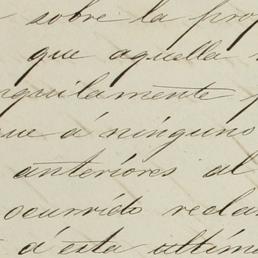 sobre la pro
que aquella
nquilamente p
que á ninguno
anterióres al
ocurrido recla
á ésta ultima